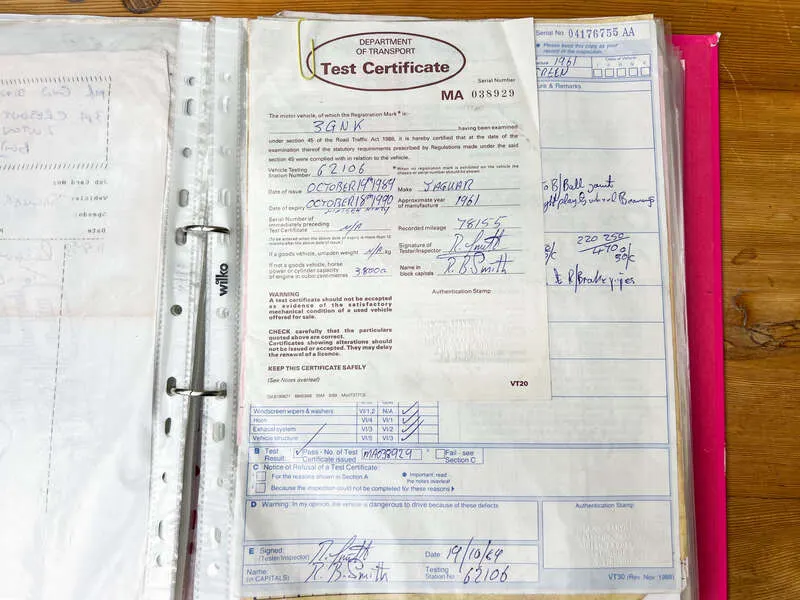 DEPARTMENT
OF TRANSPORT
Test Certificate
Serial Number
MA 038929
The motor vehicle, of which the Registration Mark* is:-
3GNK having been examined
under section 45 of the Road Traffic Act 1988, it is hereby certified that at the date of the
examination thereof the statutory requirements prescribed by Regulations made under the said
section 45 were complied with in relation to the vehicle.
Vehicle Testing
Station Number 62106
*When no registration mark is exhibited on the vehicle the
chassis or serial number should be shown.
Date of issue OCTOBER 19th 1989
Make JAGUAR
Date of expiry OCTOBER 18th 1990
NINETEEN NINETY
Approximate year
of manufacture 1961
Serial Number of
immediately preceding
Test Certificate N/A
Recorded mileage 78155
(To be entered when the above date of expiry is more than 12
months after the above date of issue.)
Signature of
Tester/Inspector R. Smith
If a goods vehicle, unladen weight N/A kg
If not a goods vehicle, horse
power or cylinder capacity
of engine in cubic centimetres 3800cc
Name in
block capitals R. B. Smith
WARNING
A test certificate should not be accepted
as evidence of the satisfactory
mechanical condition of a used vehicle
offered for sale.
Authentication Stamp
CHECK carefully that the particulars
quoted above are correct.
Certificates showing alterations should
not be issued or accepted. They may delay
the renewal of a licence.
KEEP THIS CERTIFICATE SAFELY
(See Notes overleaf)
VT20
Serial No 04176755 AA
Please keep this copy as your
record of the inspection.
1961
& Remarks
Ball joint
220 250
wilko
Job Card No:
Vehicle:
Speedo:
Date
Windscreen wipers & washers VI/1,2 N/A
Horn VI/4 VI/1
Exhaust system VI/3 VI/2
Vehicle structure VI/5 VI/3
B Test
Result: Pass - No. of Test
Certificate issued MA038929
Fail - see
Section C
C Notice of Refusal of a Test Certificate:
For the reasons shown in Section A
Important: read
the notes overleaf
Because the inspection could not be completed for these reasons
D Warning: In my opinion, the vehicle is dangerous to drive because of these defects
Authentication Stamp
E Signed:
(Tester/Inspector) R. Smith
Date 19/10/89
Name:
(in CAPITALS) R. B. Smith
Testing
Station No 62106
VT30 (Rev. Nov. 1988)